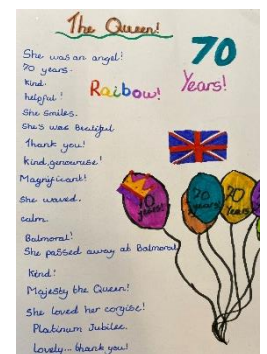 The Queen!
She was an angel!
70 years.
kind.
helpful!
She smiles.
She's was Beatiful
Thank you!
kind, genourise!
Magnificant!
She waved.
calm.
Balmoral!
She passed away at Balmoral
kind!
Majesty the Queen!
She loved her corgise!
Platinum Jubilee.
Lovely... thank you!
70
Years!
Raibow!
70
years!
70
years
70
Years